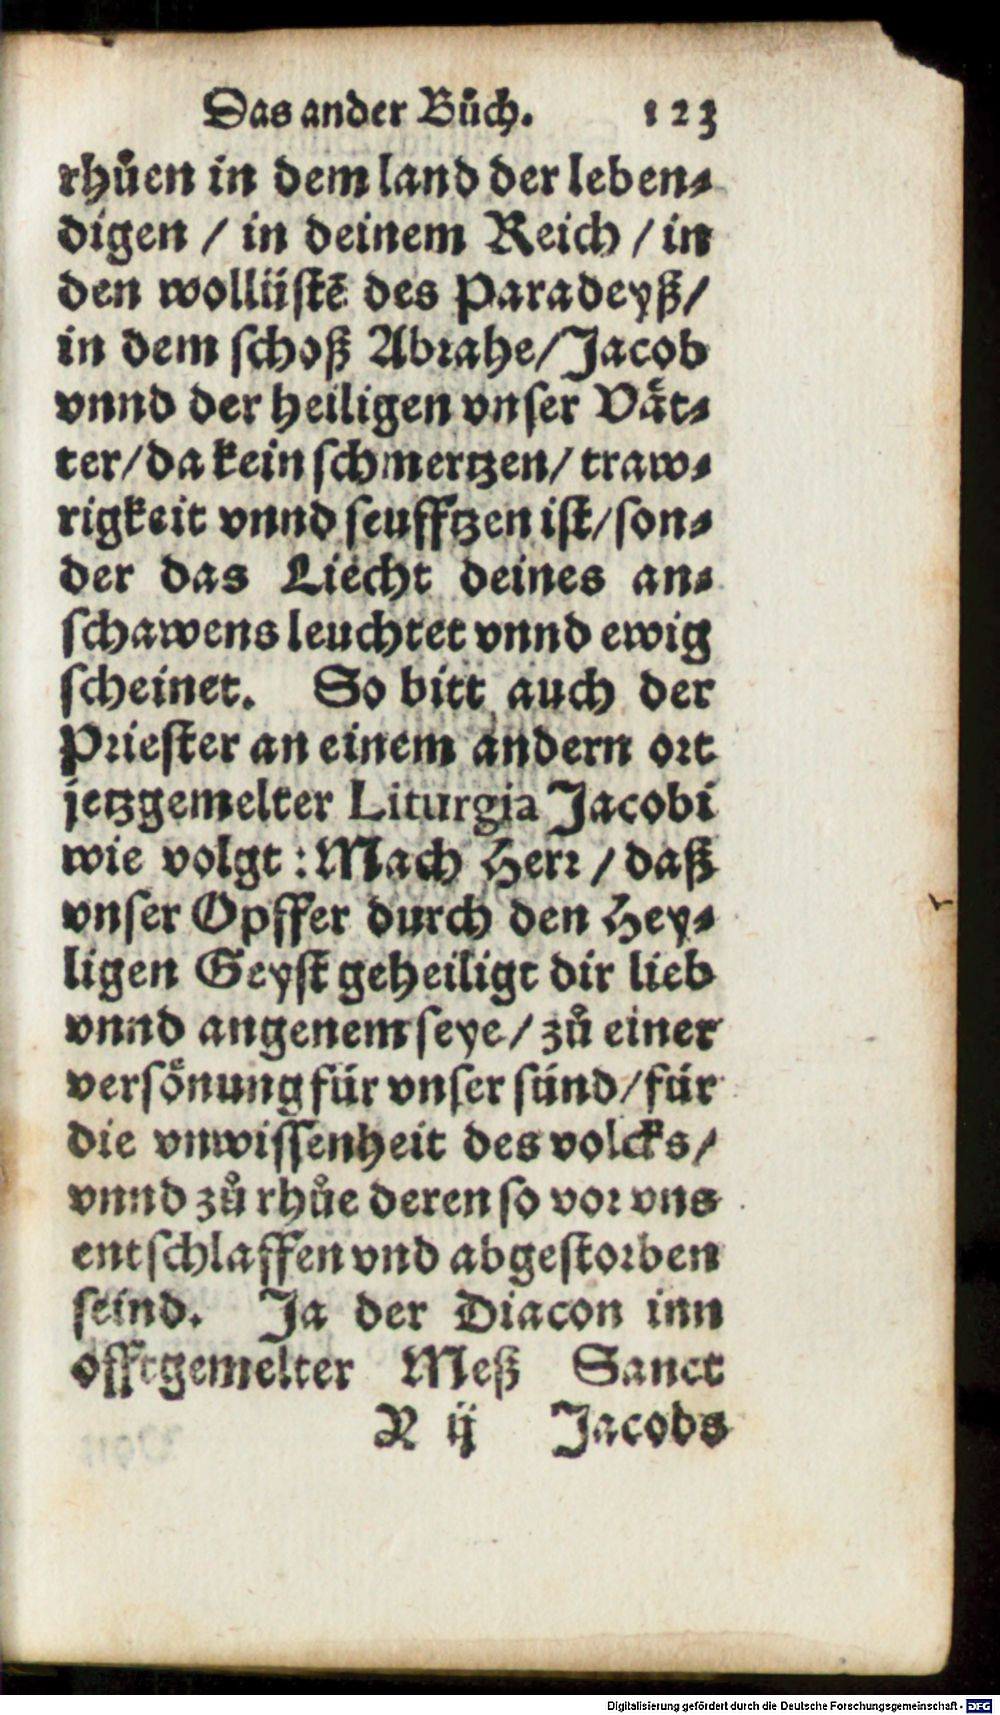 Das ander Bůch. 123
rhůen in dem land der leben⸗
digen / in deinem Reich / in
den wollüstē des Paradeyß/
in dem schoß Abrahe/Jacob
vnnd der heiligen vnser Vät⸗
ter/da kein schmertzen/ traw⸗
rigkeit vnnd seufftzen ist/son⸗
der das Liecht deines an⸗
schawens leuchtet vnnd ewig
scheinet. So bitt auch der
Priester an einem andern ort
jetzgemelter Liturgia Jacobi
wie volgt : Mach Herr / daß
vnser Opffer durch den Hey⸗
ligen Geyst geheiligt dir lieb
vnnd angenem seye/ zů einer
versönung für vnser sünd/für
die vnwissenheit des volcks/
vnnd zů rhůe deren so vor vns
entschlaffen vnd abgestorben
seind. Ja der Diacon inn
offtgemelter Meß Sanct
R ij Jacobs
Digitalisierung gefördert durch die Deutsche Forschungsgemeinschaft - DFG